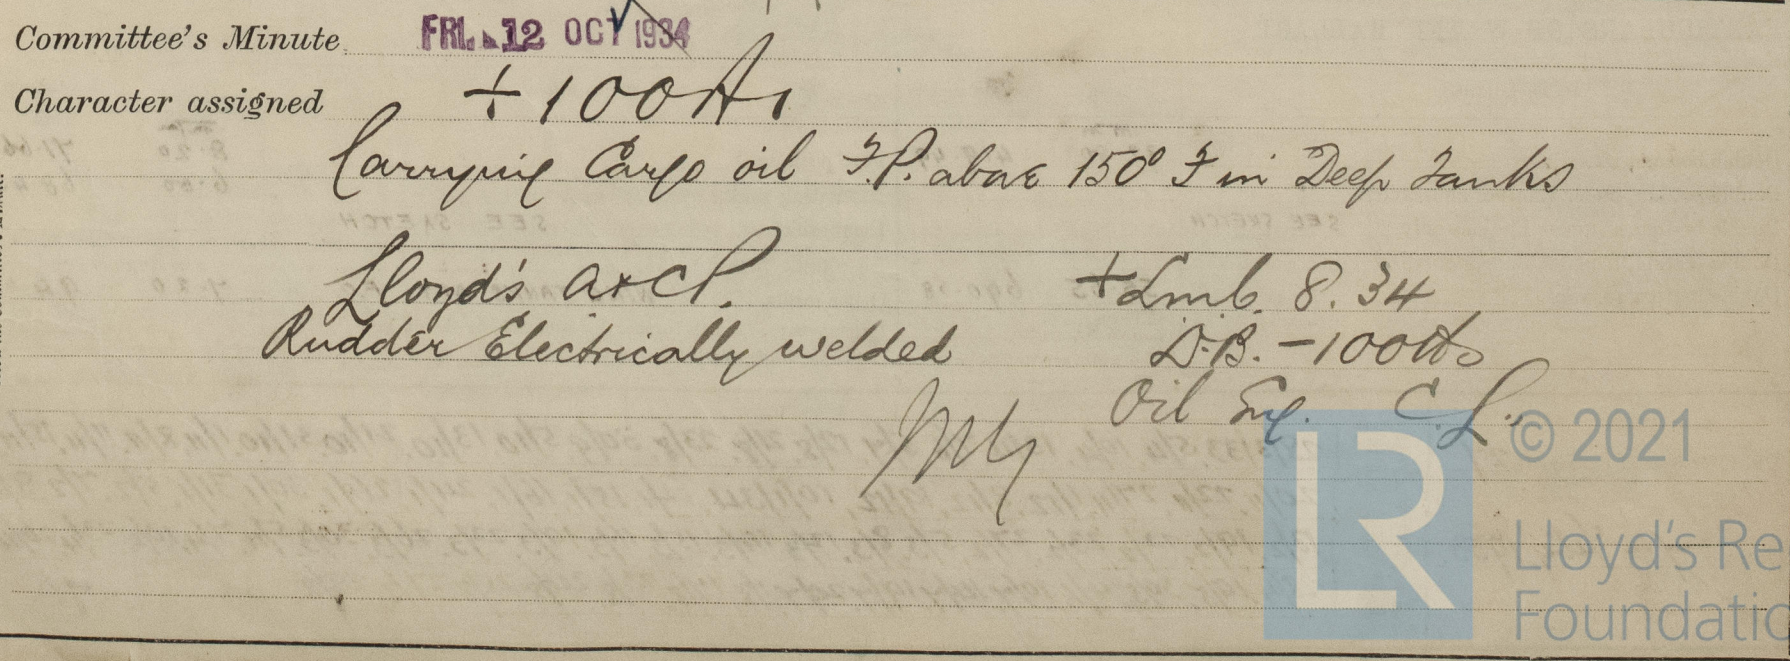 Committee's Minute FRI. 12 OCT 1934
Character assigned + 100A1
Carrying Cargo oil F.P. above 150° F in Deep Tanks
Lloyd's A & C P. + Lmb. 8. 34
Rudder Electrically welded D.B. - 100 lb
Oil Eng. C.L.
LR © 2021
Lloyd's Re
Foundatio